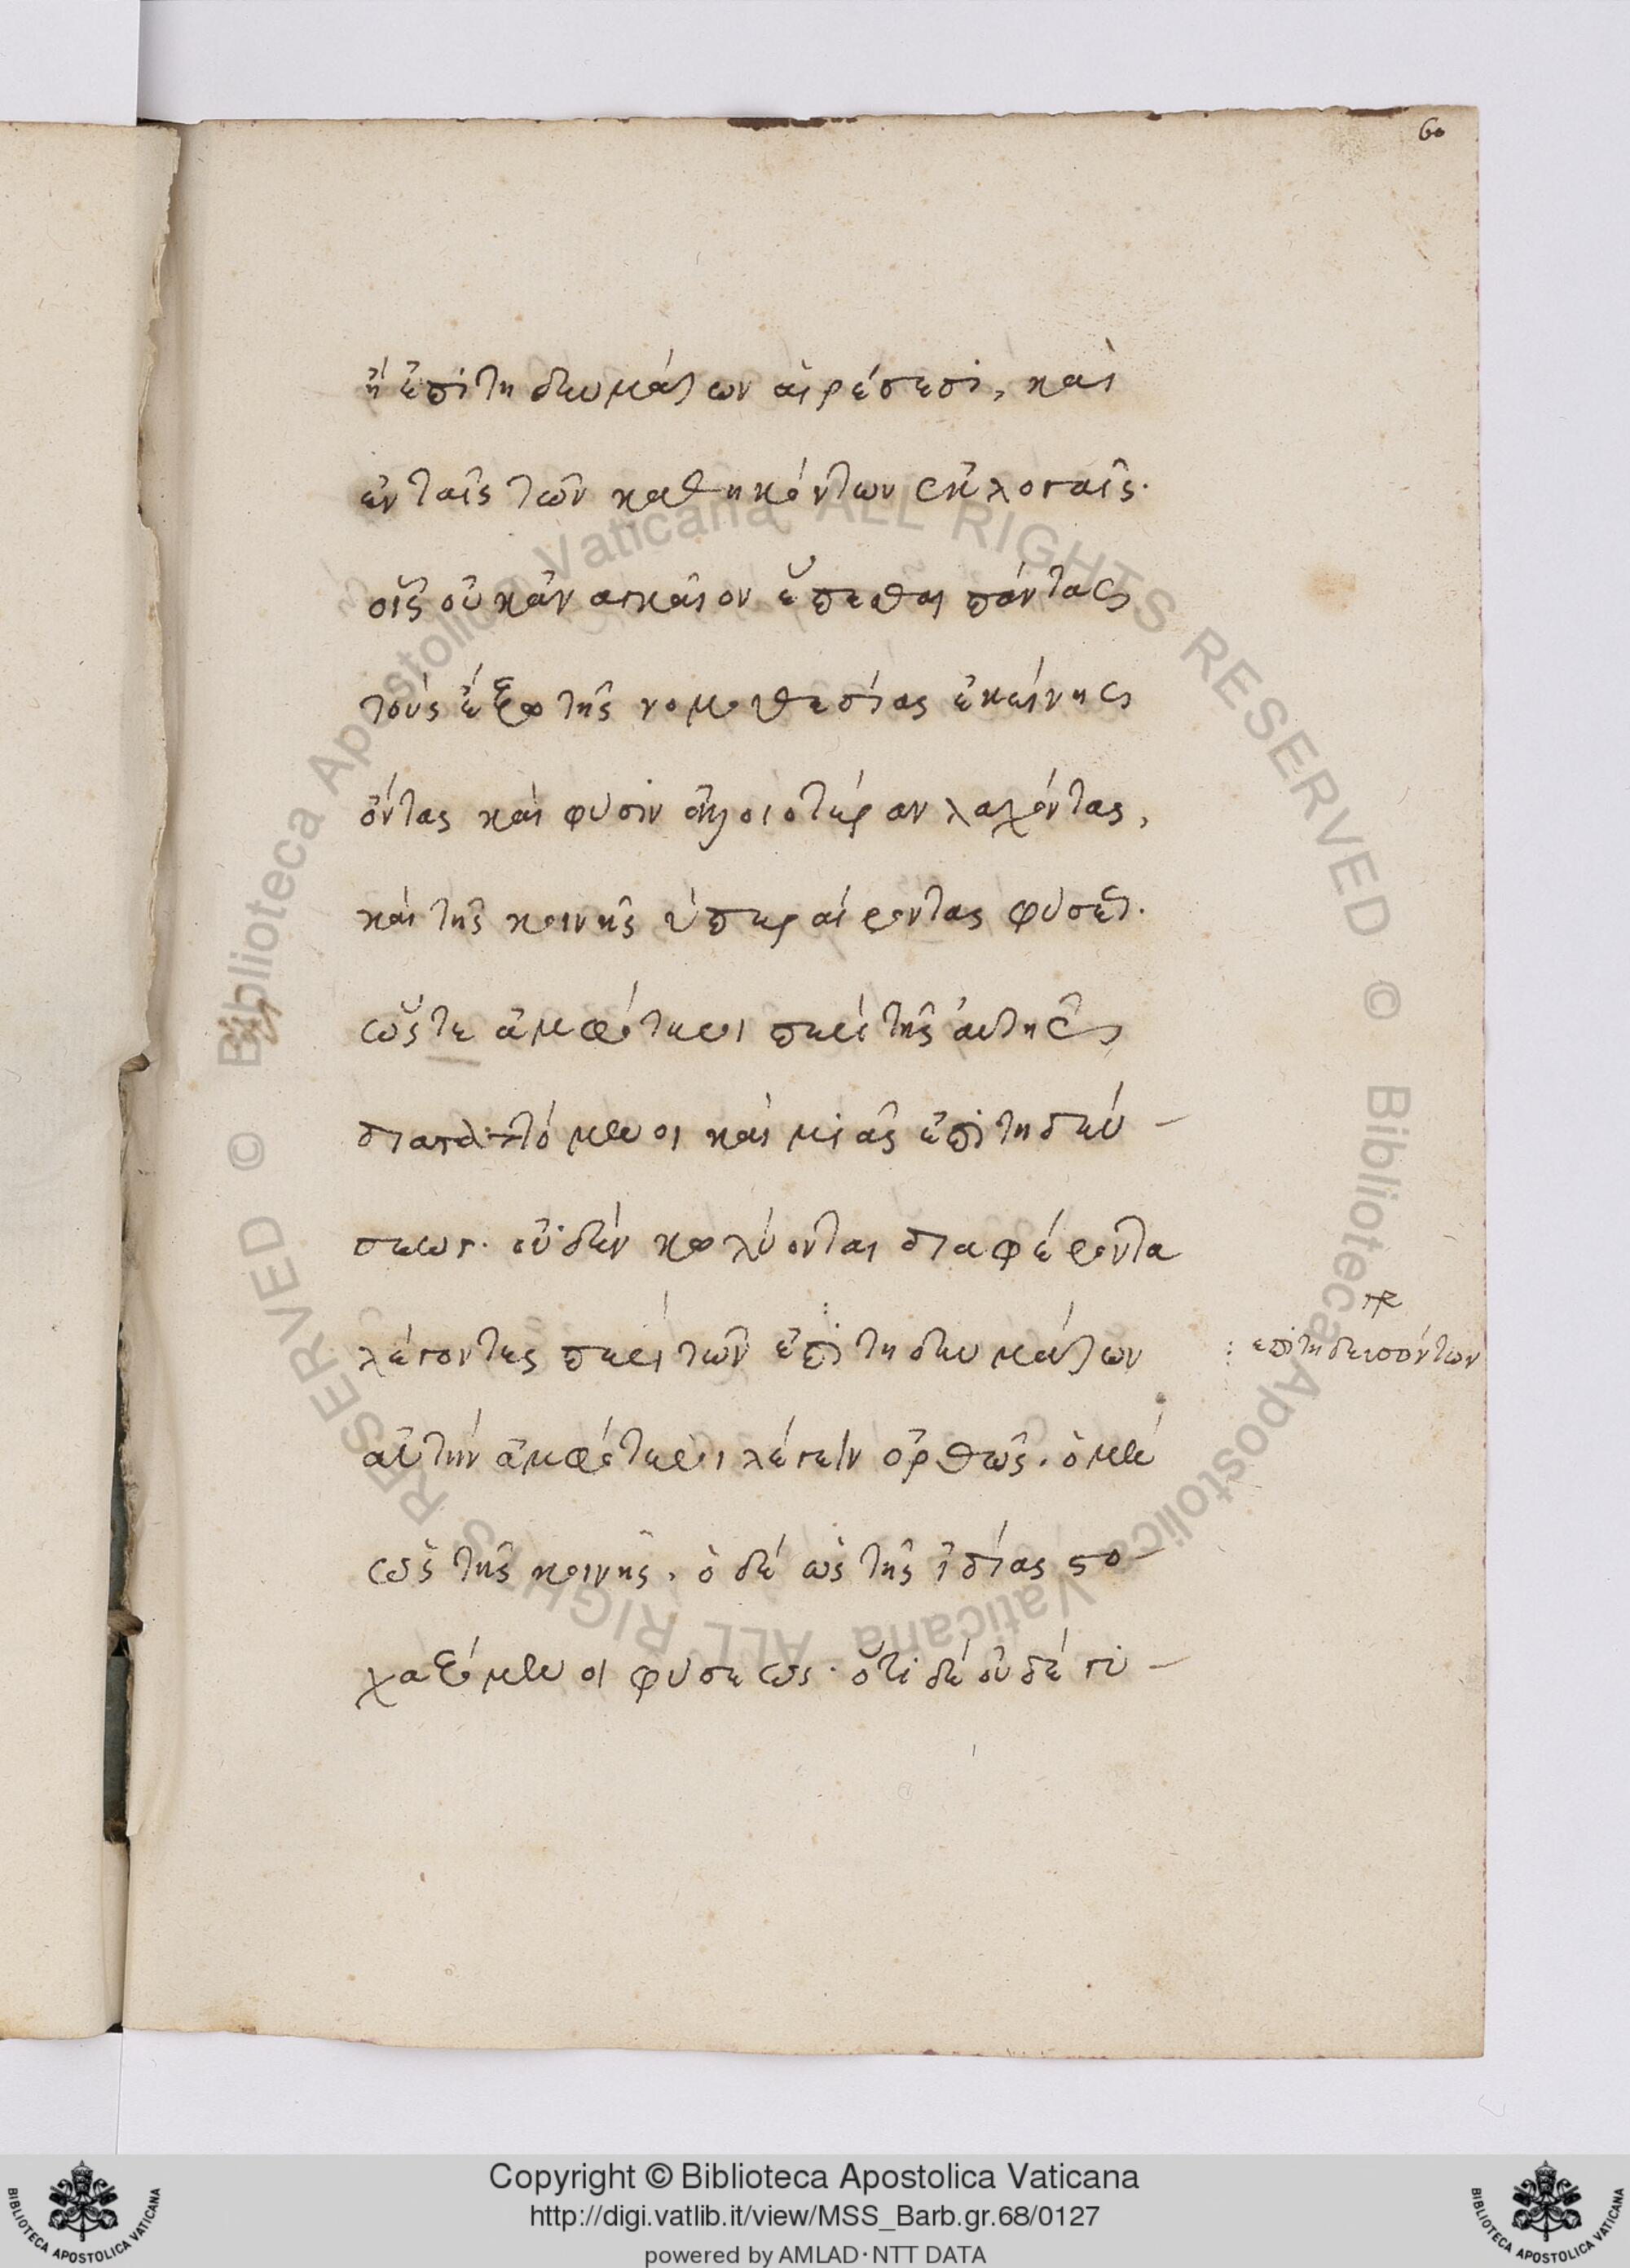 60
ἢ ἐπιτηδευμάτων αἱρέσεσι, καὶ
ἐν ταῖς τῶν καθηκόντων ἐκλογαῖς·
οἷς οὐκ ἀναγκαῖον ἕπεσθαι πάντας
τοὺς ἔξω τῆς νομοθεσίας ἐκείνης
ὄντας καὶ φύσιν ἀλλοιοτέραν λαχόντας,
καὶ τῆς κοινῆς ὑπεραίροντας φύσεως·
ὥστε ἀμφότεροι περὶ τῆς αὐτῆς
διαπλαττόμενοι καὶ μιᾶς ἐπιτηδεύ-
σεως· οὐδὲν κωλύονται διαφέροντα
λέγοντες περὶ τῶν ἐπιτηδευμάτων
αὐτὴν ἀμφότεροι λέγειν ὀρθῶς. ὁ μὲν
ὡς τῆς κοινῆς, ὁ δὲ ὡς τῆς ἰδίας στο-
χαζόμενοι φύσεως· ὅτι δὲ οὐδὲ γυ-
γρ
ἐπιτηδευσόντων
Biblioteca Apostolica Vaticana ALL RIGHTS RESERVED ©
Biblioteca Apostolica Vaticana ALL RIGHTS RESERVED ©
Copyright © Biblioteca Apostolica Vaticana
http://digi.vatlib.it/view/MSS_Barb.gr.68/0127
powered by AMLAD·NTT DATA
BIBLIOTECA APOSTOLICA VATICANA
BIBLIOTECA APOSTOLICA VATICANA